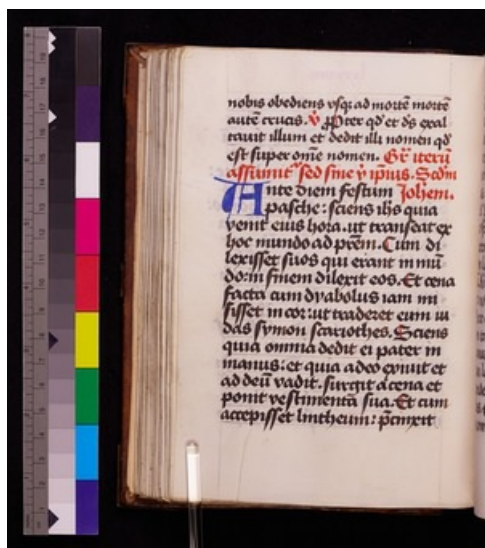 nobis obediens vsqꝫ ad mortē mortē
autē crucis. ꝟ ꝓpter qđ et ds exal
tauit illum et dedit illi nomen qđ
est super om̄e nomen. Gr̄ iterū
assumit᷑ sed sine ꝟ ipsius. Scdm
Ante diem festum Johem.
pasche: sciens ihs quia
venit eius hora. ut transeat ex
hoc mundo ad prēm. Cum di
lexisset suos qui erant in mū
do: in finem dilexit eos. Et cena
facta cum dyabolus iam mi
sisset in cor: ut traderet eum iu
das symon scariothes. Sciens
quia omnia dedit ei pater in
manus: et quia a deo exiuit et
ad deū vadit. surgit a cena et
ponit vestimenta sua. Et cum
accepisset lintheum: p̄cinxit